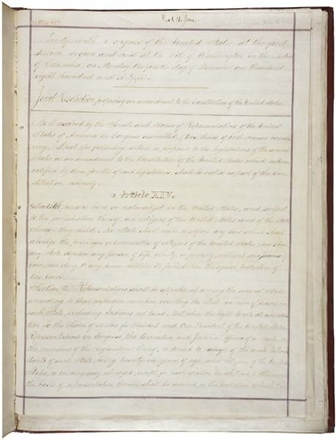 Thirty-ninth Congress of the United States, at the first
Session, begun and held at the City of Washington, in the District
of Columbia, on Monday the fourth day of December, one thousand
eight hundred and sixty-five.
Joint Resolution proposing an amendment to the Constitution of the United States.
Be it resolved by the Senate and House of Representatives of the United
States of America in Congress assembled, two thirds of both Houses concur
ring, That the following article be proposed to the legislatures of the several
States as an amendment to the Constitution of the United States, which, when
ratified by three fourths of said legislatures, shall be valid as part of the Con
stitution, namely:
Article XIV.
Section 1. All persons born or naturalized in the United States, and subject
to the jurisdiction thereof, are citizens of the United States and of the State
wherein they reside. No State shall make or enforce any law which shall
abridge the privileges or immunities of citizens of the United States; nor shall
any State deprive any person of life, liberty, or property, without due process of
law; nor deny to any person within its jurisdiction the equal protection of
the laws.
Section 2. Representatives shall be apportioned among the several States
according to their respective numbers, counting the whole number of persons in
each State, excluding Indians not taxed. But when the right to vote at any elec
tion for the choice of electors for President and Vice President of the United States,
Representatives in Congress, the Executive and Judicial officers of a State, or
the members of the Legislature thereof, is denied to any of the male inhab
itants of such State, being twenty-one years of age, and citizens of the United
States, or in any way abridged, except for participation in rebellion, or other crime,
the basis of representation therein shall be reduced in the proportion which the